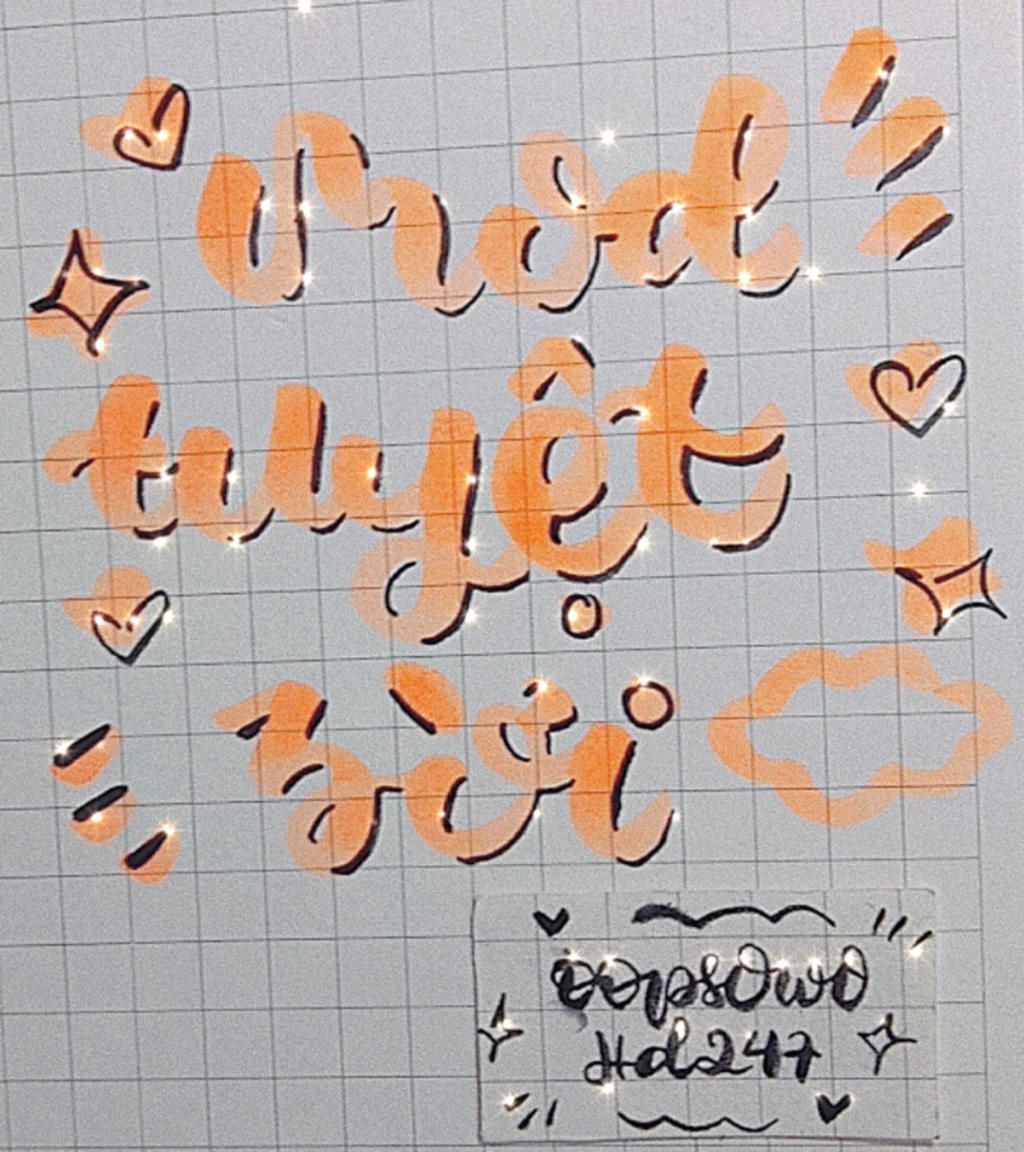 Mod
tuyệt
zời
oopsOwO
Hd247